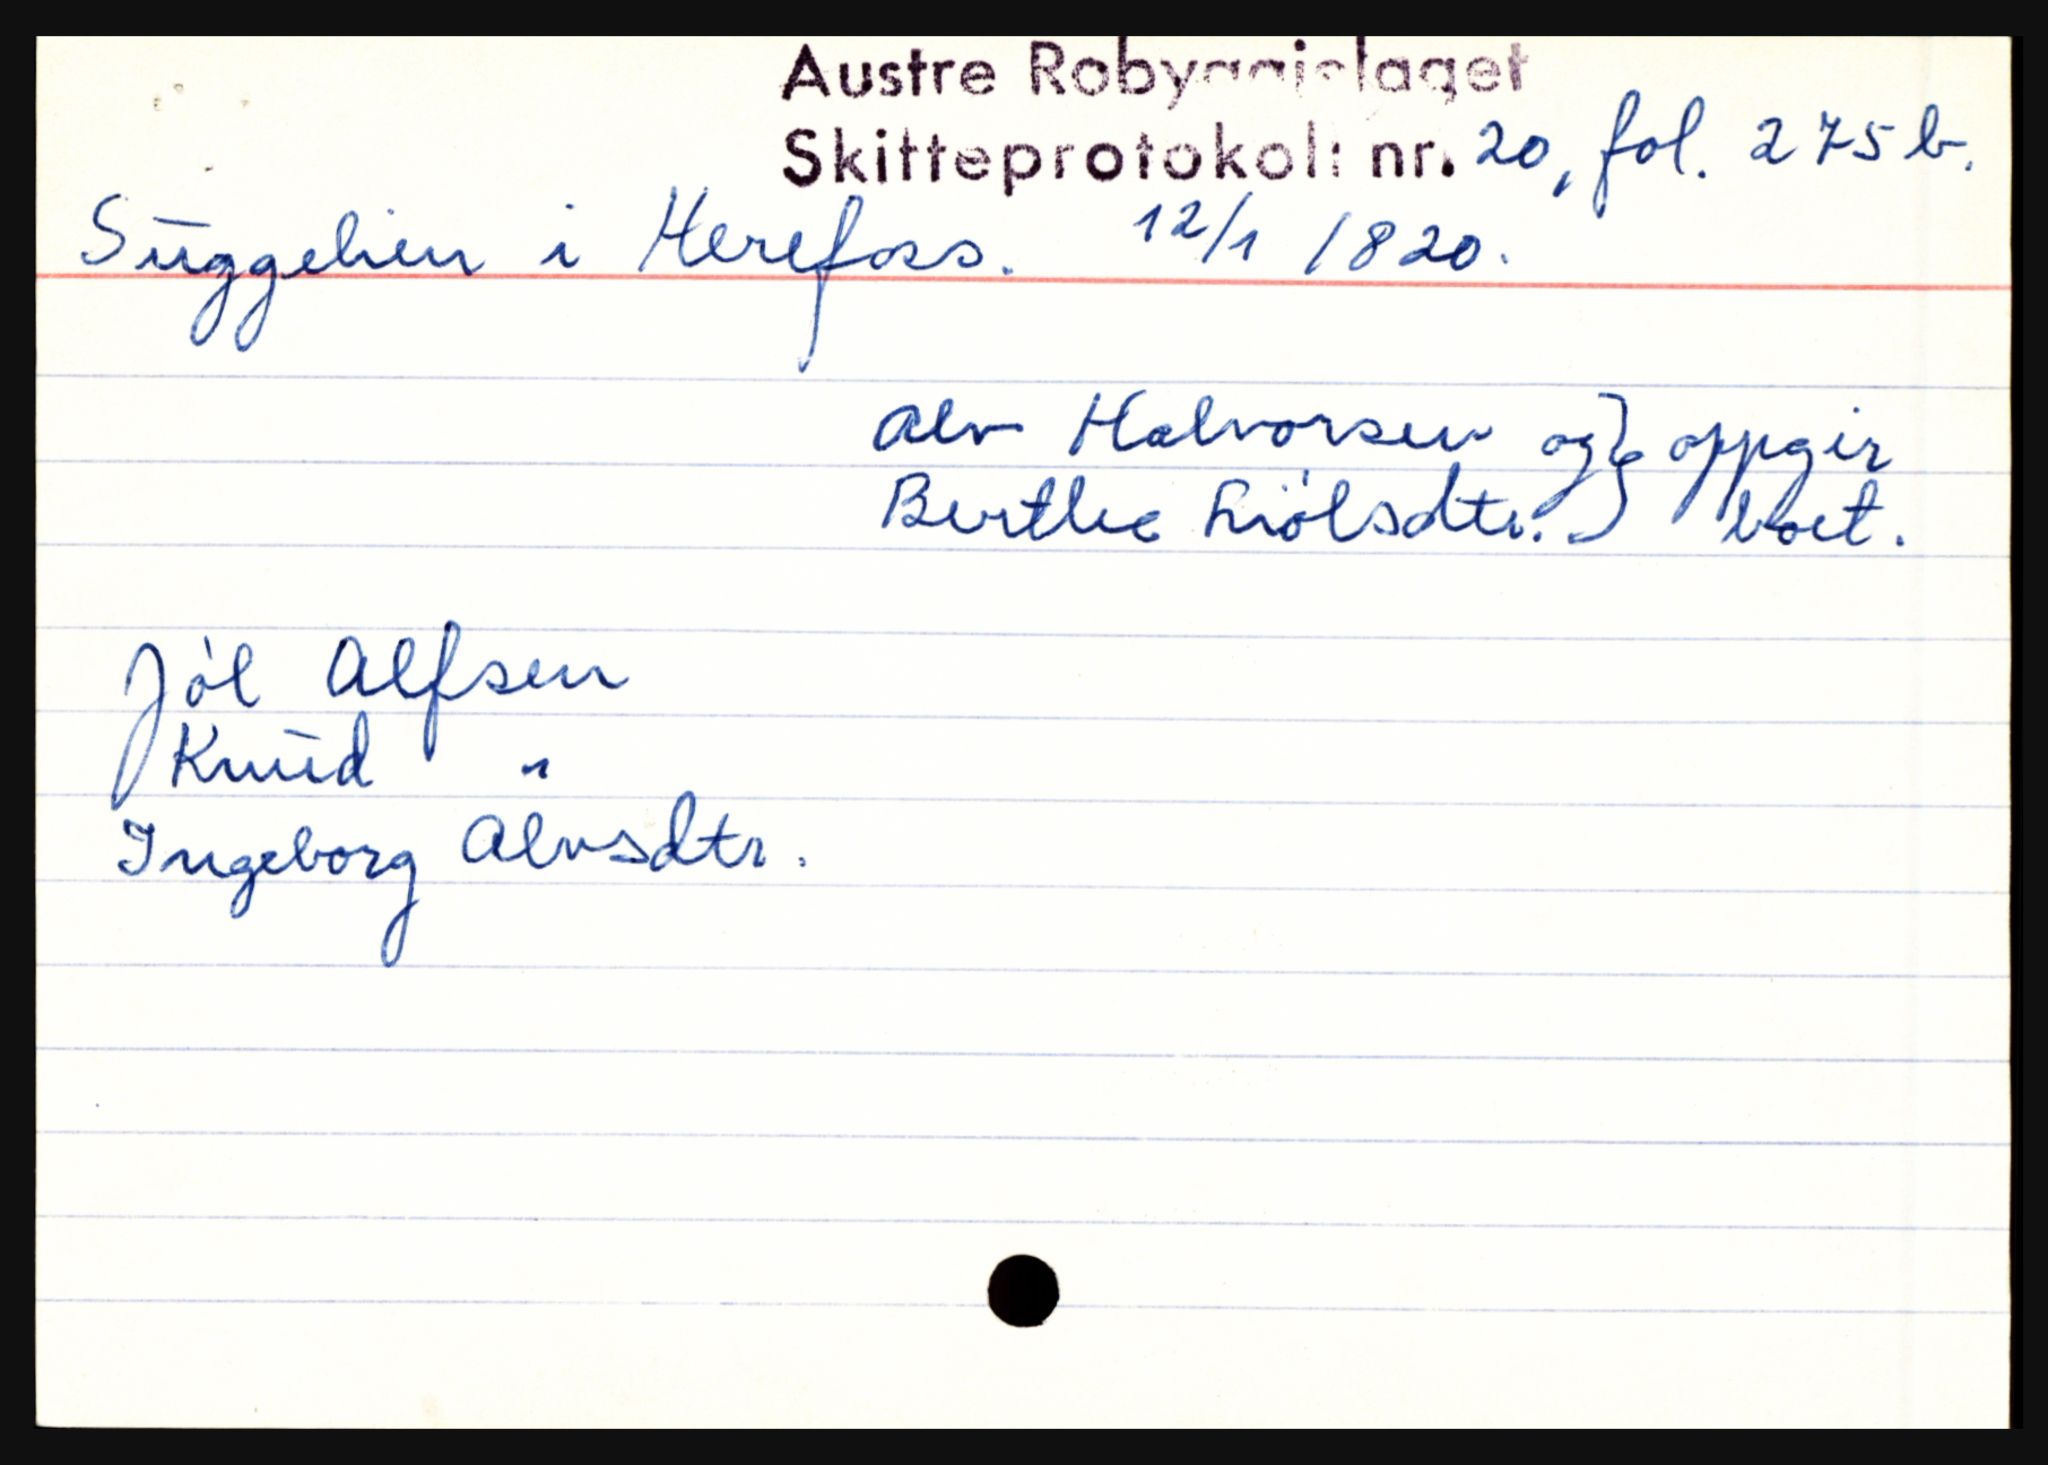 Austre Robyggjelaget
Skifteprotokoll nr. 20, fol. 275 b.
Suggelien i Herefoss. 12/1 1820.
Alv Halvorsen og } oppgir
Berthe Liölsdtr. } boet.
Jöl Alfsen
Knud "
Ingeborg Alvsdtr.